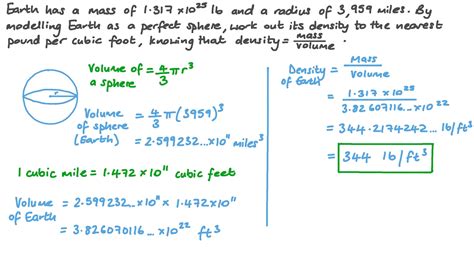 Earth has a mass of 1.317 x10²⁵ lb and a radius of 3,959 miles. By
modelling Earth as a perfect sphere, work out its density to the nearest
pound per cubic foot, knowing that density = mass/volume.
Volume of a sphere = 4/3 π r³
Volume of sphere (Earth) = 4/3 π (3959)³
= 2.599232... x10¹¹ miles³
1 cubic mile = 1.472 x10¹¹ cubic feet
Volume of Earth = 2.599232... x10¹¹ x 1.472 x10¹¹
= 3.826070116... x10²² ft³
Density of Earth = Mass/Volume
= 1.317 x10²⁵/3.82607116... x10²²
= 344.2174242... lb/ft³
= 344 lb/ft³